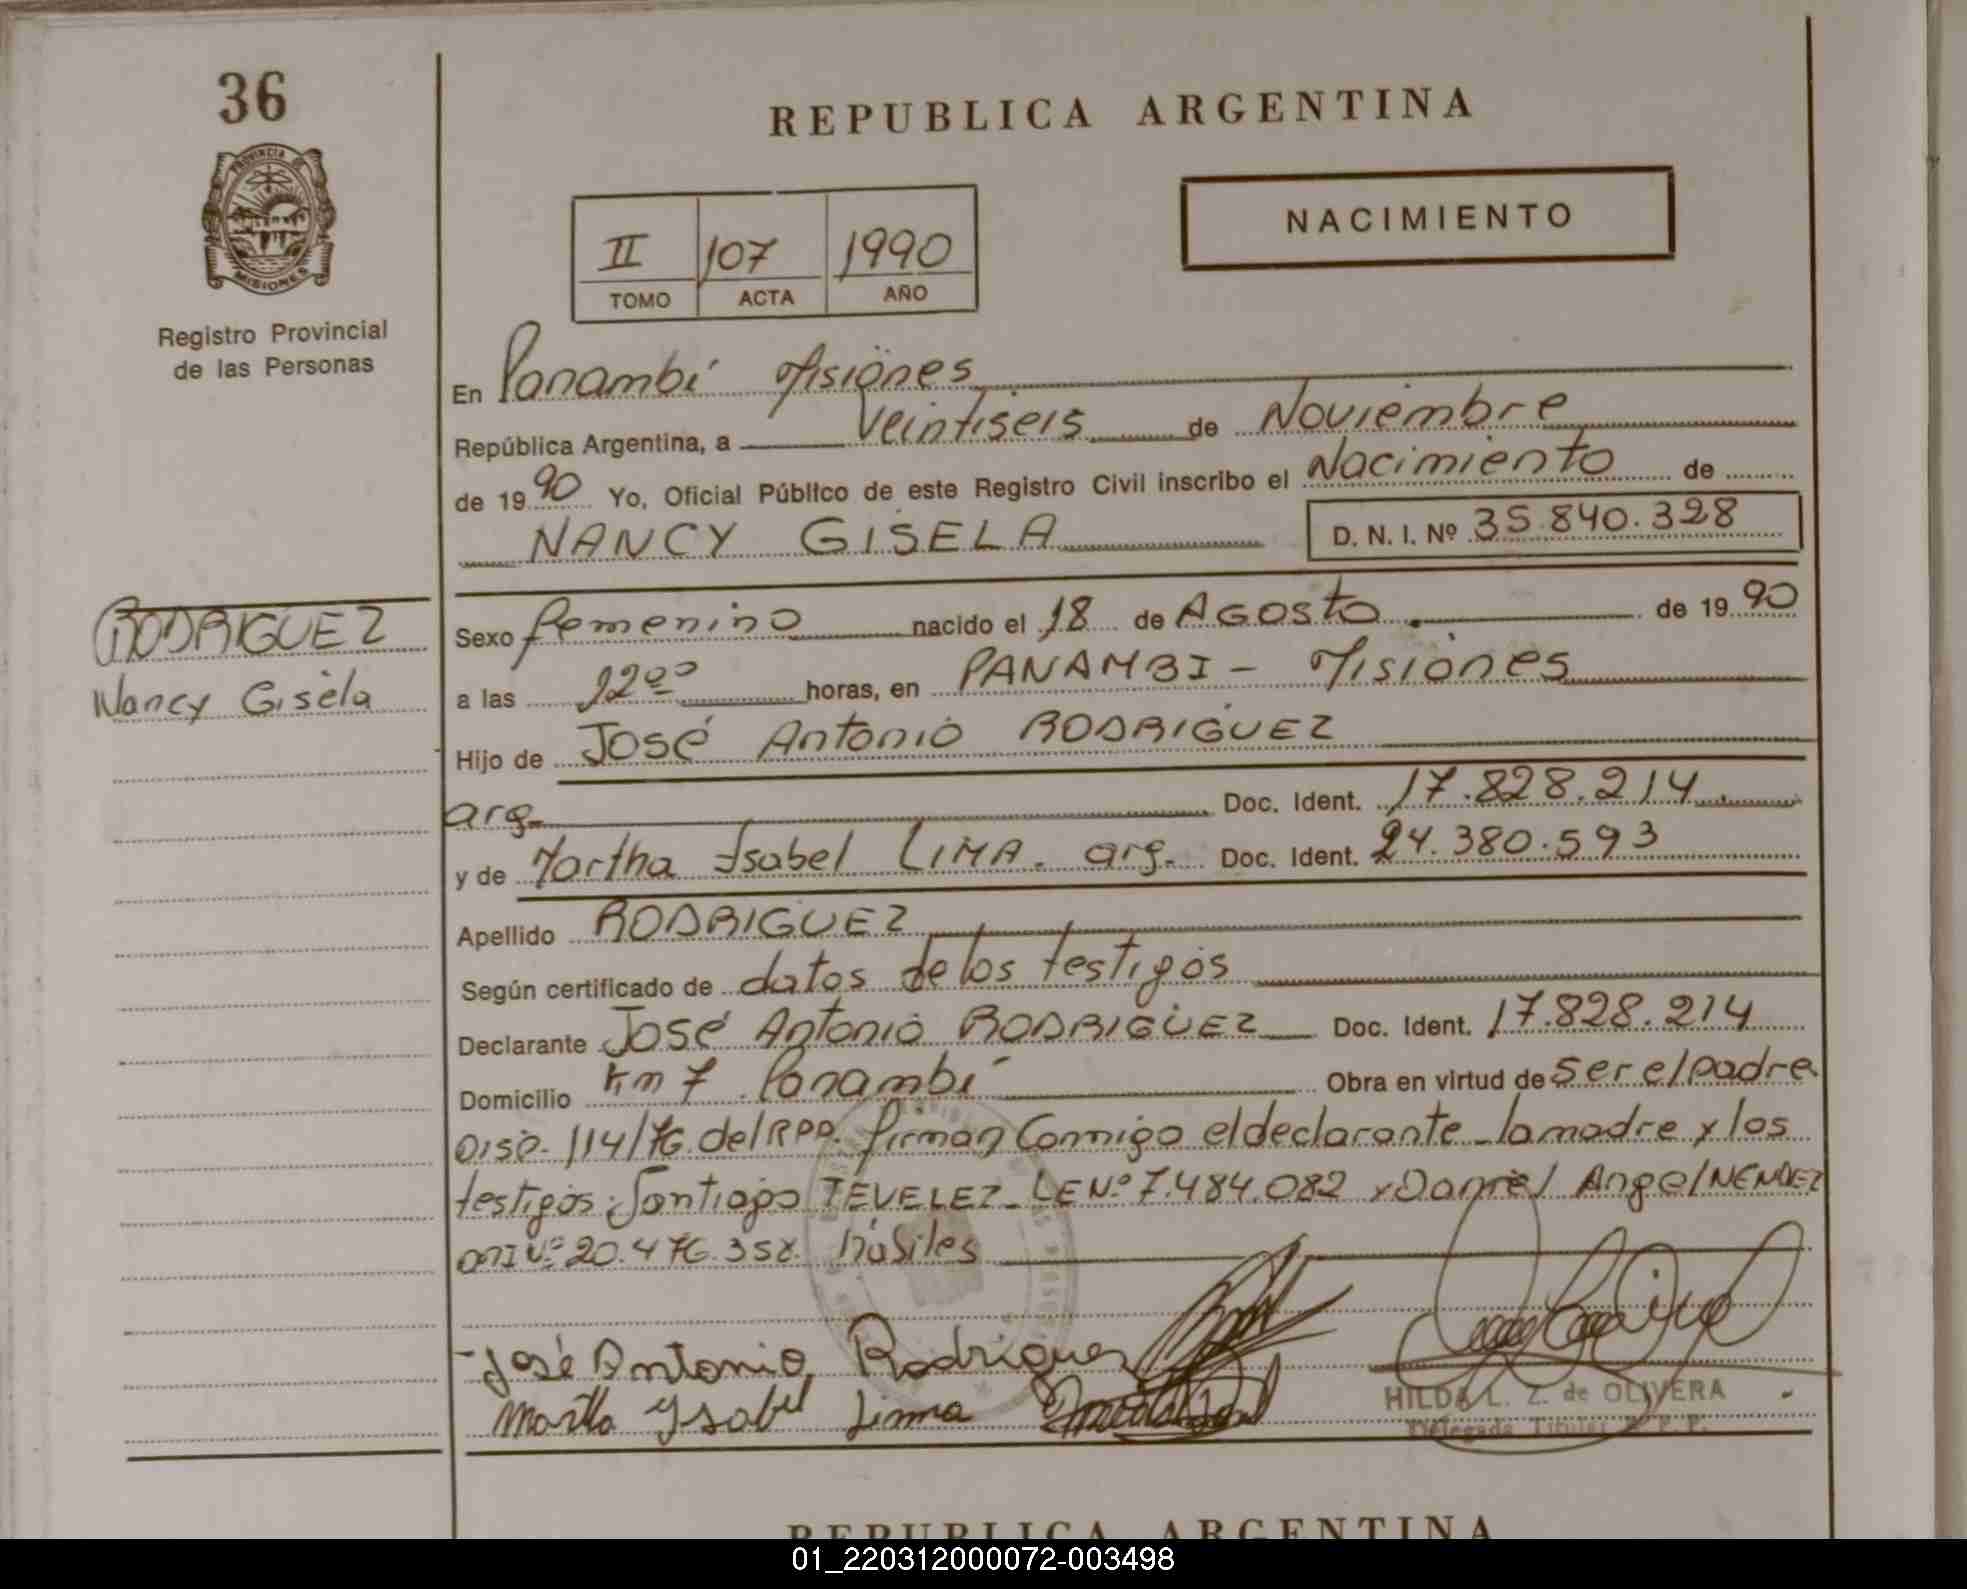 36
PROVINCIA DE
MISIONES
Registro Provincial
de las Personas
REPUBLICA ARGENTINA
II 107 1990
TOMO ACTA AÑO
NACIMIENTO
En Panambí Misiones
República Argentina, a Veintiseis de Noviembre
de 1990 Yo, Oficial Público de este Registro Civil inscribo el Nacimiento de
NANCY GISELA D. N. I. Nº 35.840.328
RODRIGUEZ
Nancy Gisela
Sexo femenino nacido el 18 de AGOSTO de 1990
a las horas, en PANAMBI - Misiones
Hijo de José Antonio RODRIGUEZ
arg. Doc. Ident. 17.828.214
y de Martha Isabel LIMA. arg. Doc. Ident. 24.380.593
Apellido RODRIGUEZ
Según certificado de datos de los testigos
Declarante José Antonio RODRIGUEZ Doc. Ident. 17.828.214
Domicilio Km 7 Panambí Obra en virtud de ser el padre
Disp. 114/76 del RPP. firman Conmigo el declarante la madre y los
testigos: Santiago TEVELEZ LE Nº 7.484.082 y Daniel Angel MENDEZ
DNI Nº 20.476.358. hábiles
José Antonio Rodriguez
Martha Ysabel Limma
HILDA L. Z. de OLIVERA
Delegada Titular R. P. P.
REPUBLICA ARGENTINA
01_220312000072-003498